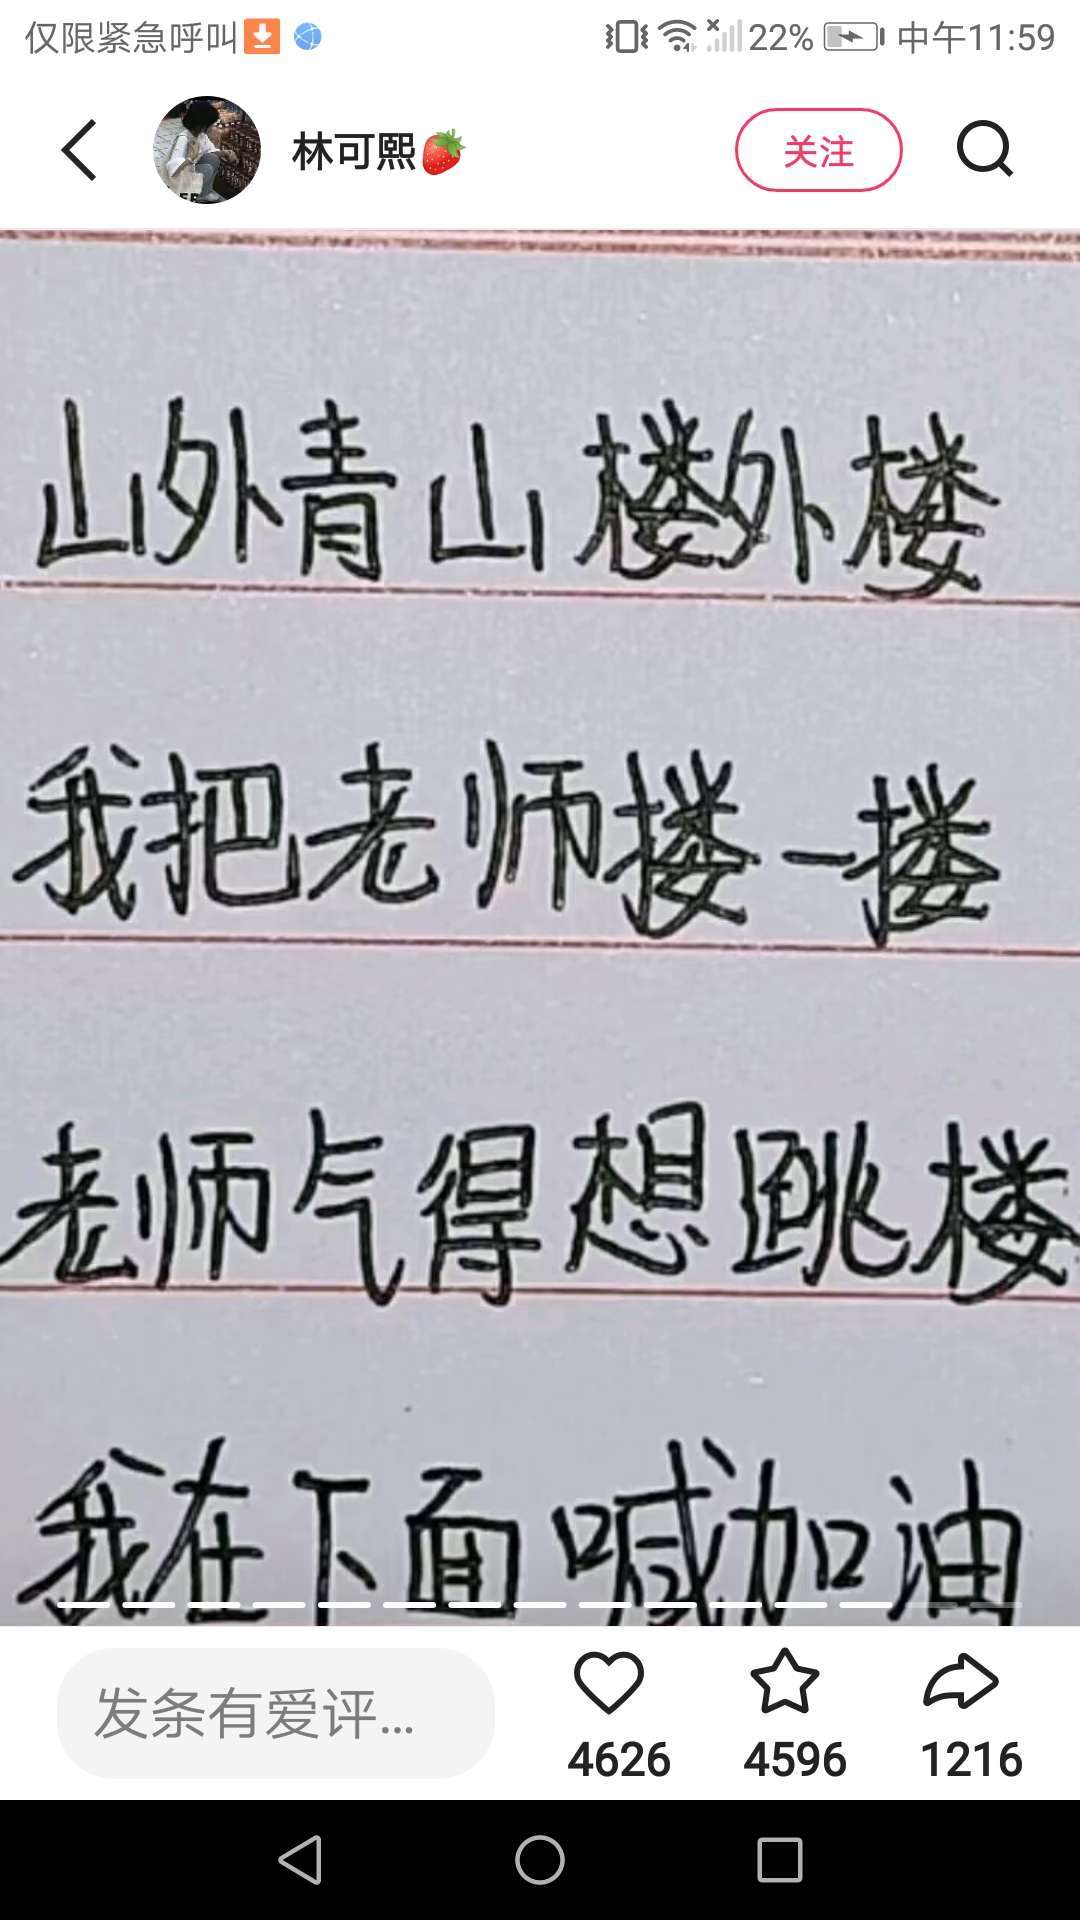 仅限紧急呼叫 22% 中午11:59
林可熙 关注
山外青山楼外楼
我把老师搂一搂
老师气得想跳楼
我在下面喊加油
发条有爱评...
4626 4596 1216